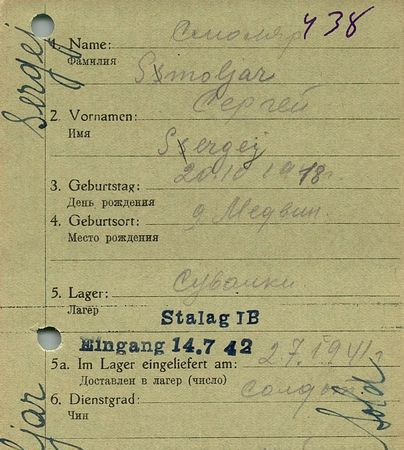 Sergej
1. Name: Смоляр 438
Фамилия
Smoljar
Сергей
2. Vornamen:
Имя
Sergej
3. Geburtstag: 20.10.1918.
День рождения
4. Geburtsort: д. Медвин.
Место рождения
5. Lager: Сувалки
Лагер
Stalag IB
Eingang 14.7 42
5a. Im Lager eingeliefert am: 2.7.1941г
Доставлен в лагер (число)
6. Dienstgrad: солдат
Чин
jar
Sold